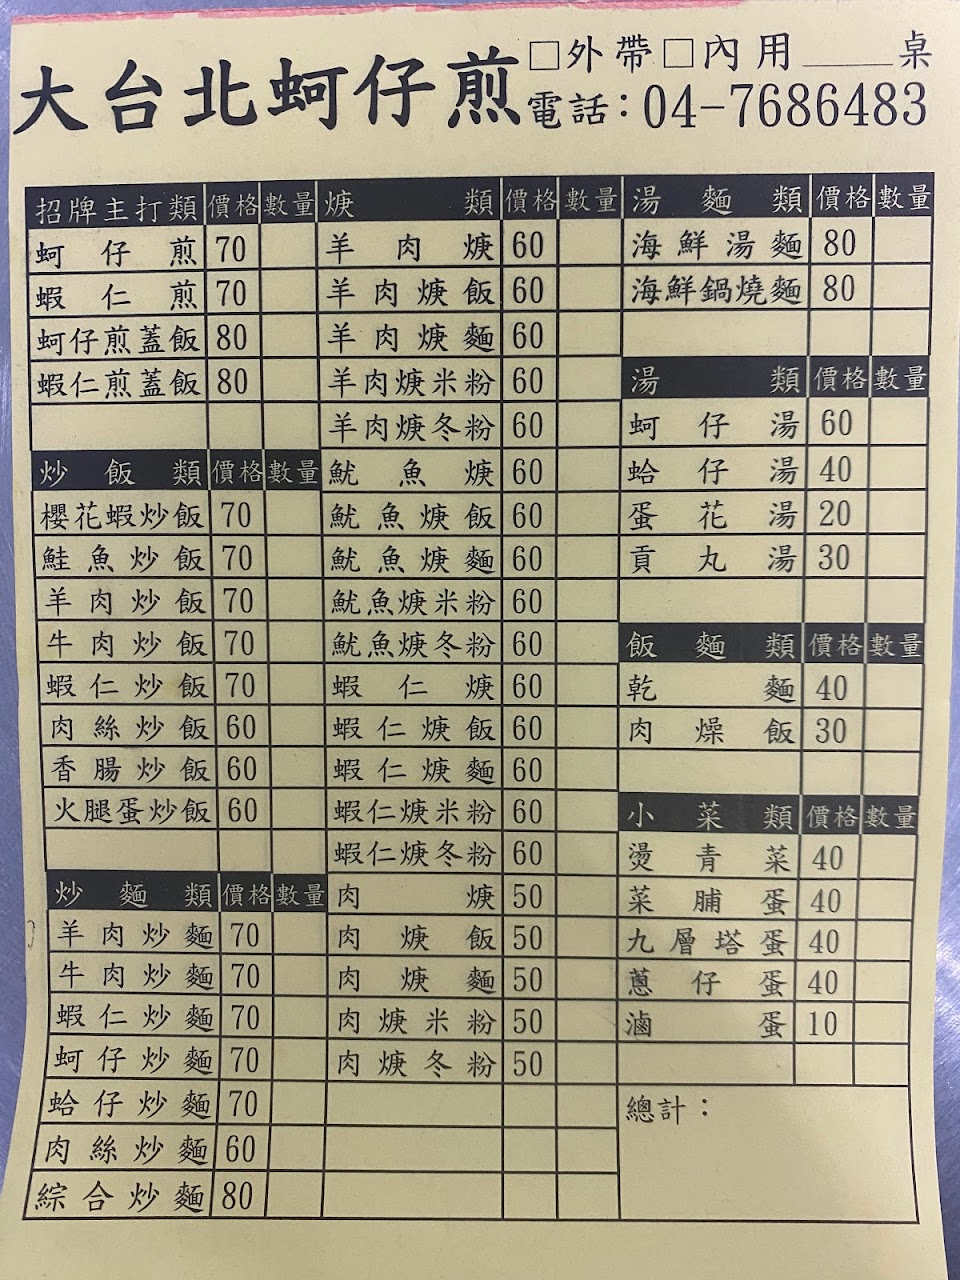 大台北蚵仔煎
□外帶□內用____桌
電話：04-7686483
招牌主打類 價格 數量
蚵仔煎 70
蝦仁煎 70
蚵仔煎蓋飯 80
蝦仁煎蓋飯 80
炒飯類 價格 數量
櫻花蝦炒飯 70
鮭魚炒飯 70
羊肉炒飯 70
牛肉炒飯 70
蝦仁炒飯 70
肉絲炒飯 60
香腸炒飯 60
火腿蛋炒飯 60
炒麵類 價格 數量
羊肉炒麵 70
牛肉炒麵 70
蝦仁炒麵 70
蚵仔炒麵 70
蛤仔炒麵 70
肉絲炒麵 60
綜合炒麵 80
焿類 價格 數量
羊肉焿 60
羊肉焿飯 60
羊肉焿麵 60
羊肉焿米粉 60
羊肉焿冬粉 60
魷魚焿 60
魷魚焿飯 60
魷魚焿麵 60
魷魚焿米粉 60
魷魚焿冬粉 60
蝦仁焿 60
蝦仁焿飯 60
蝦仁焿麵 60
蝦仁焿米粉 60
蝦仁焿冬粉 60
肉焿 50
肉焿飯 50
肉焿麵 50
肉焿米粉 50
肉焿冬粉 50
湯麵類 價格 數量
海鮮湯麵 80
海鮮鍋燒麵 80
湯類 價格 數量
蚵仔湯 60
蛤仔湯 40
蛋花湯 20
貢丸湯 30
飯麵類 價格 數量
乾麵 40
肉燥飯 30
小菜類 價格 數量
燙青菜 40
菜脯蛋 40
九層塔蛋 40
蔥仔蛋 40
滷蛋 10
總計：